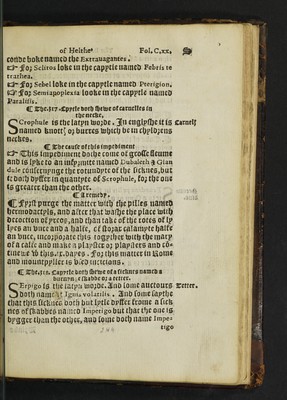 of Helthe Fol. C.xx.
conde boke named the Extrauagantes.
☞ For Scliros loke in the capytle named Febris te
trathea.
☞ For Sebel loke in the capytle named Pterigion.
☞ For Semiapoplexia looke in the capytle named
Paralisis.
¶ The.317. Capytle doth shewe of carnelles in
the necke.
SCrophule is the latyn worde. In englyshe it is
named knottꝭ or burres which be in chyldrens
neckes.
Carnels
¶ The cause of this impediment
☞ This impediment doche come of grosse fleume
and is lyke to an infyrmite named Dubaleth &
dule concernynge the rotundyte of the sicknes, but
it doth dysfer in quantyte of Scrophule, for the one
is greater than the other.
¶ A remedy.
¶ Fyrst purge the matter with the pilles named
hermodactyls, and after that washe the place with
decoction of yreos, and than take of the rotes of ly
lyes an vnce and a halfe, of storax calamyte halfe
an vnce, incorporate this together with the mary
of a calfe and make a playster or playsters and co-
tinue this .ix. dayes. For this matter in Rome
and mountpyller is vsed incisions.
¶ The.318. Capytle doth shewe of a sicknes named a
SErpigo is the latyn worde. And some auctours
doth name it Ignis volatilis. And some saythe
that this sicknes doth but lytle dysfer frome a sick
nes of skabbes named Impetigo but that the one is
bygger than the other, and some doth name Impe-
tigo
Tetter.